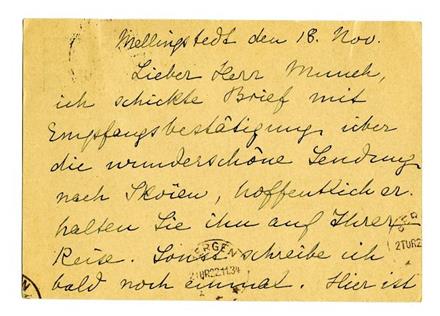 Mellingstedt den 18. Nov.
Lieber Herr Munch,
ich schickte Brief mit
Empfangsbestätigung über
die wunderschöne Sendung
nach Skøien, hoffentlich er-
halten Sie ihn auf Ihrer
Reise. Sonst schreibe ich
bald noch einmal. Hier ist
ERGEN
2TUR22.11.34
2TUR2